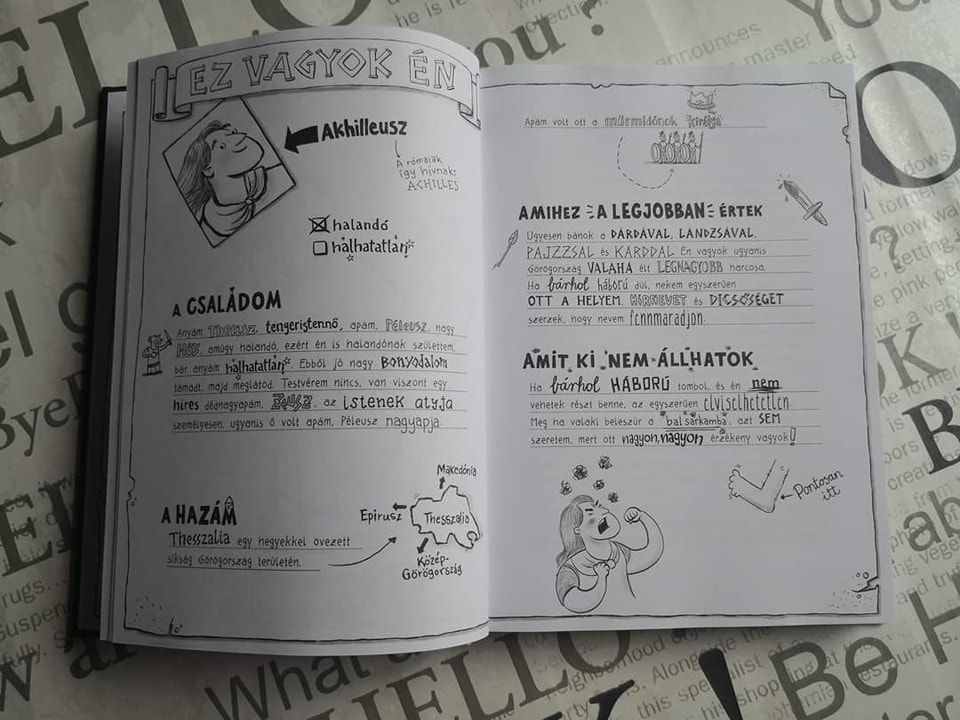 EZ VAGYOK ÉN
Akhilleusz
A rómaiak
így hívnak:
ACHILLES
halandó
halhatatlan
A CSALÁDOM
Anyám tengeristennő, apám, Péleusz, nagy
HŐS, amúgy halandó, ezért én is halandónak születtem,
bár anyám halhatatlan. Ebből jó nagy bonyodalom
támadt, majd meglátod. Testvérem nincs, van viszont egy
híres dédnagyapám, Zeusz, az istenek atyja
személyesen, ugyanis ő volt apám, Péleusz nagyapja.
A HAZÁM
Thesszalia egy hegyekkel övezett
síkság Görögország területén.
Makedónia
Epirusz
Thesszalia
Közép-
Görögország
Apám volt ott a mürmidónok királya
AMIHEZ A LEGJOBBAN ÉRTEK
Ügyesen bánok a DÁRDÁVAL, LÁNDZSÁVAL,
PAJZZSAL és KARDDAL. Én vagyok ugyanis
Görögország VALAHA élt LEGNAGYOBB harcosa.
Ha bárhol háború dúl, nekem egyszerűen
OTT A HELYEM. HÍRNEVET és DICSŐSÉGET
szerzek, hogy nevem fennmaradjon.
AMIT KI NEM ÁLLHATOK
Ha bárhol HÁBORÚ tombol, és én nem
vehetek részt benne, az egyszerűen elviselhetetlen.
Meg ha valaki beleszúr a bal sarkamba, azt SEM
szeretem, mert ott nagyon, nagyon érzékeny vagyok!
Pontosan
itt
HELLO
you?
HELLO
Be